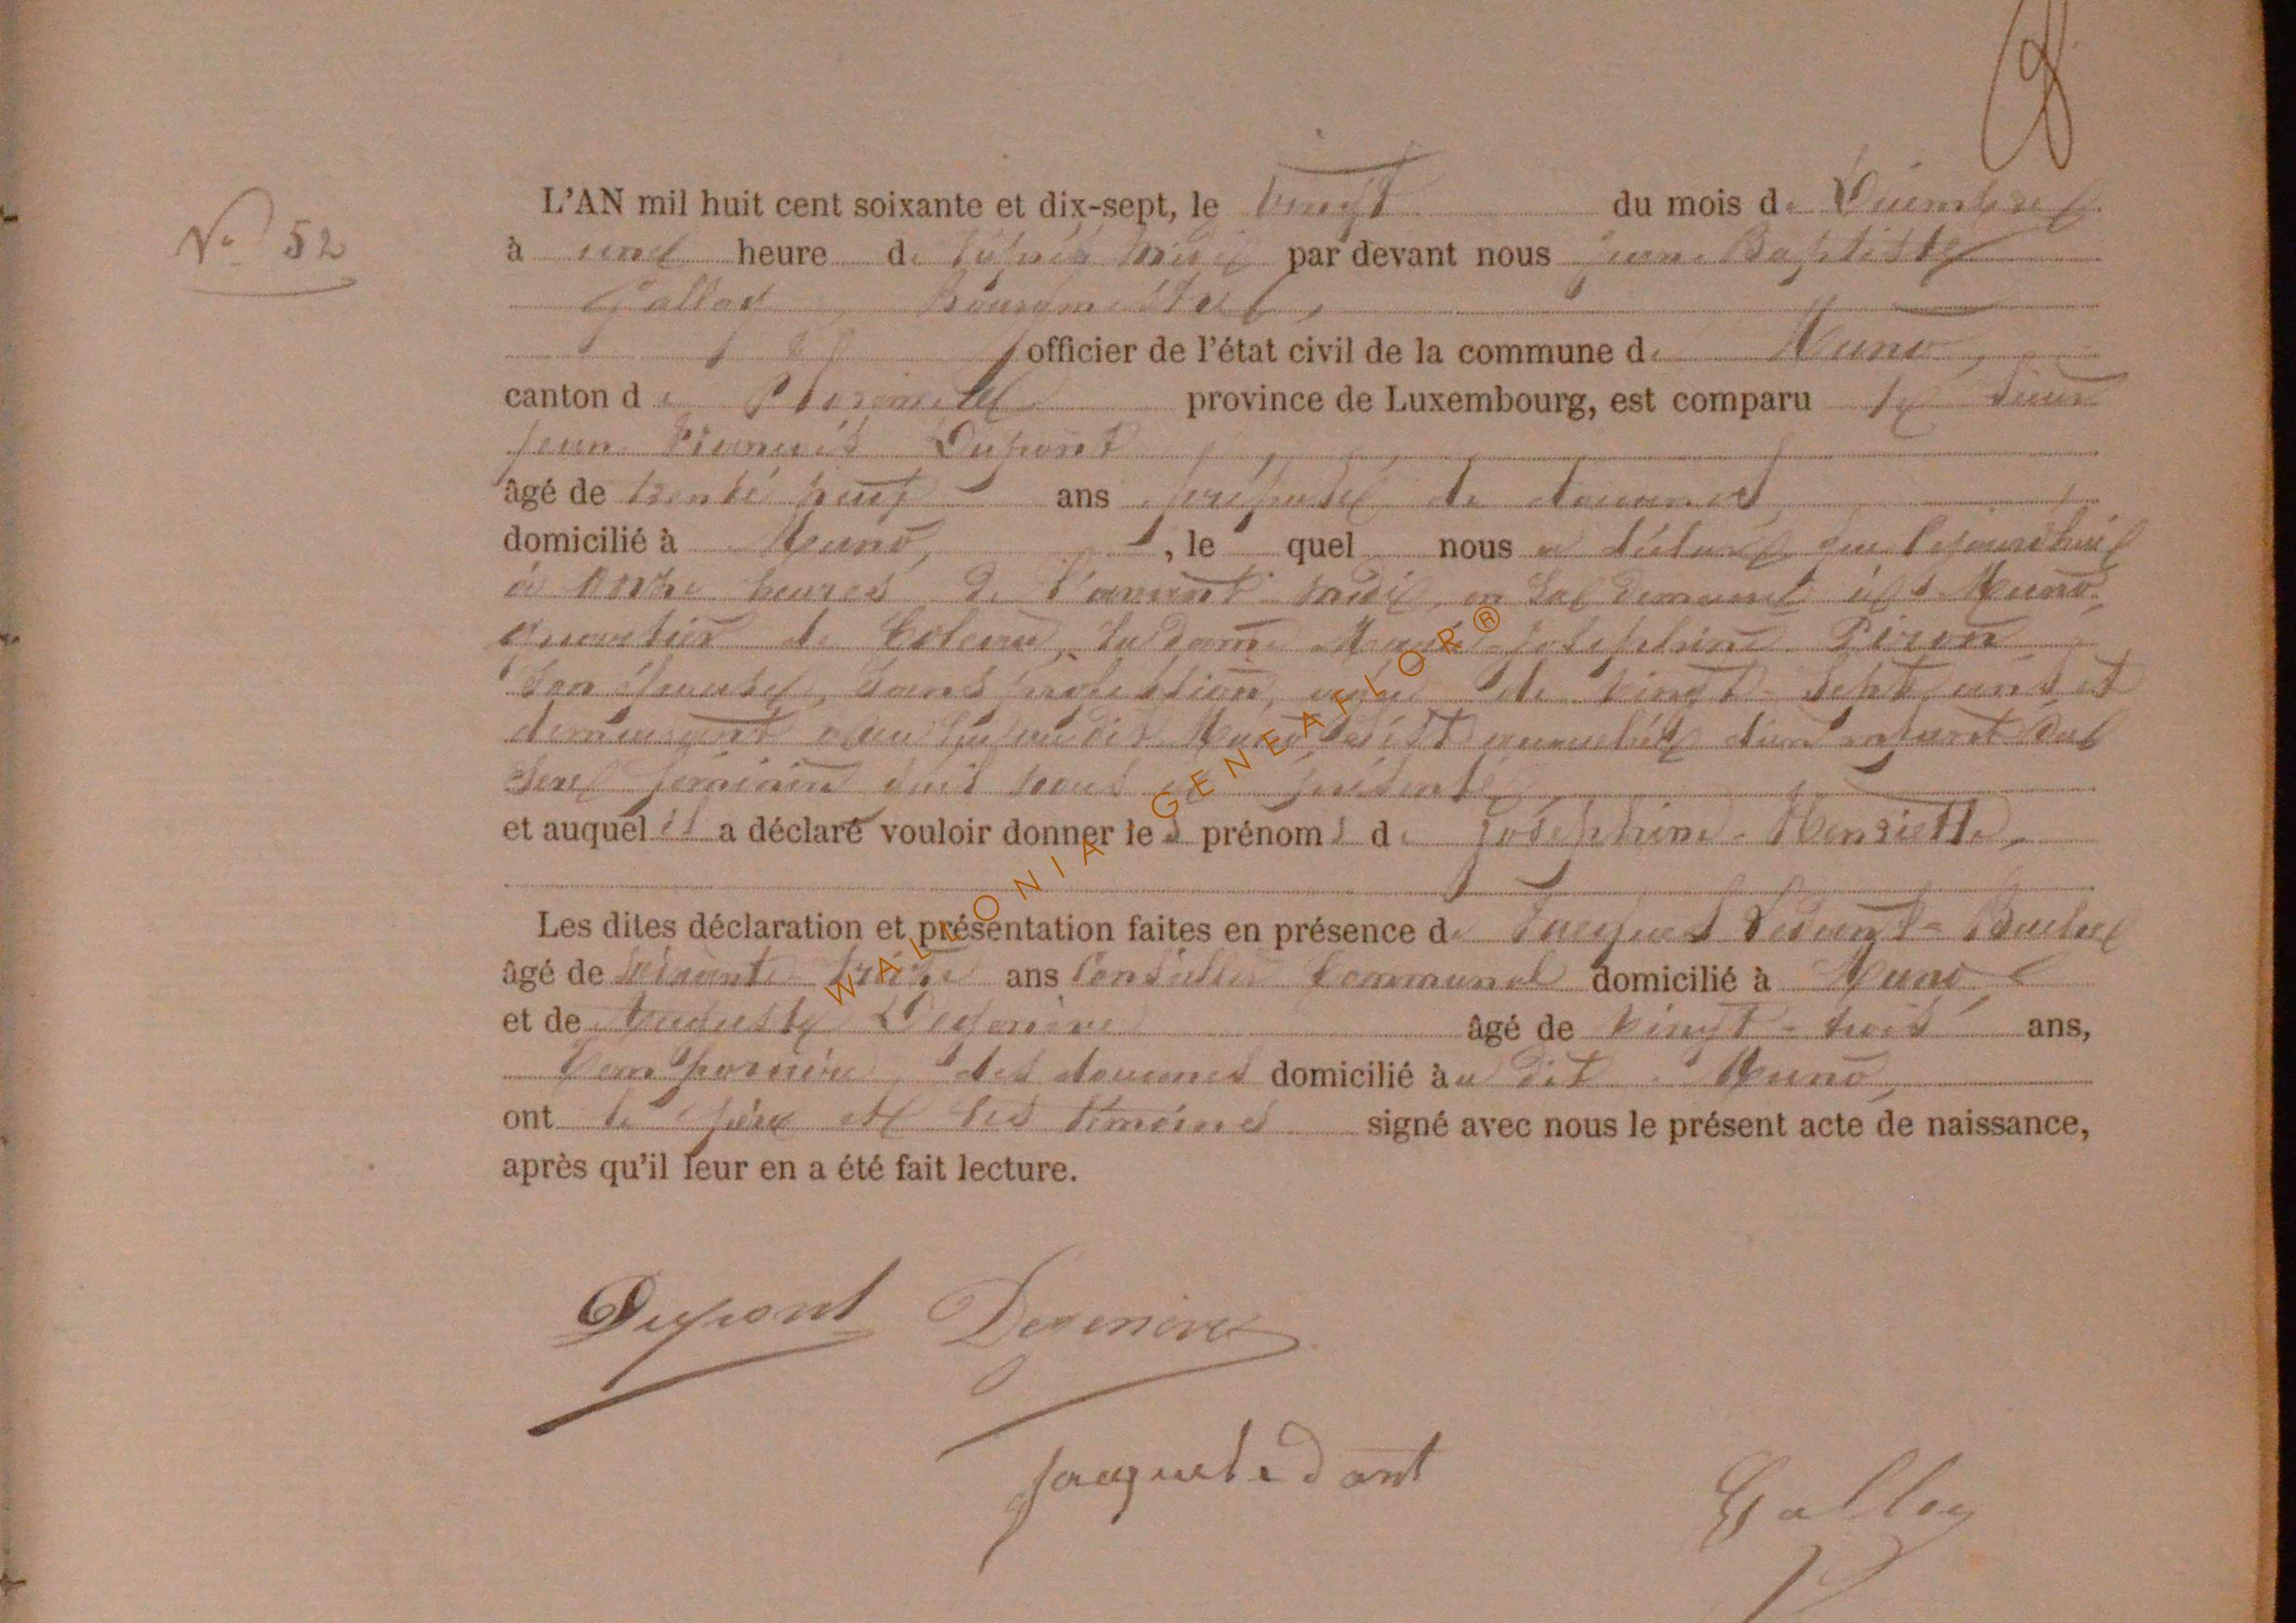 N° 52
L'AN mil huit cent soixante et dix-sept, le vingt du mois de Décembre
à une heure de l'après midi par devant nous Jean-Baptiste
Galloy, Bourgmestre,
officier de l'état civil de la commune de Muno,
canton de Florenville province de Luxembourg, est comparu le sieur
Jean François Dupont
âgé de trente neuf ans préposé de douanes
domicilié à Muno, , le quel nous a déclaré que cejourd'hui
à onze heures de l'avant midi, en sa demeure à Muno,
quartier de la dame Marie-Josephine Piron
son épouse, sans profession, agée de vingt-sept ans et
demeurant au susdit Muno, est accouchée d'un enfant du
sexe féminin qu'il nous a présenté
et auquel il a déclaré vouloir donner les prénoms de Joséphine-Henriette,
Les dites déclaration et présentation faites en présence de Jacques Ledant-
âgé de soixante treize ans Conseiller Communal domicilié à Muno
et de Auguste âgé de vingt-trois ans,
des douanes domicilié au dit Muno,
ont le père et les témoins signé avec nous le présent acte de naissance,
après qu'il leur en a été fait lecture.
Dupont
Jacque ledant
Galloy
WALLONIA GENEAFLOR®